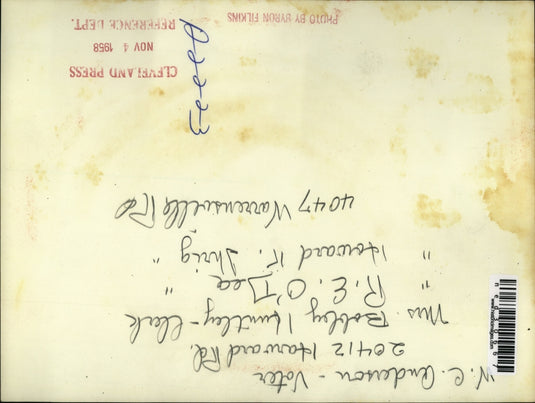 W. C. Anderson - Voter
20412 Harvard Rd.
Mrs. Bobbey Huntley - Clerk
" R. E. O'Dea "
" Howard F. Ihrig "
4047 Warrensville Rd
CLEVELAND PRESS
NOV 4 1958
REFERENCE DEPT.
PHOTO BY BYRON FILKINS